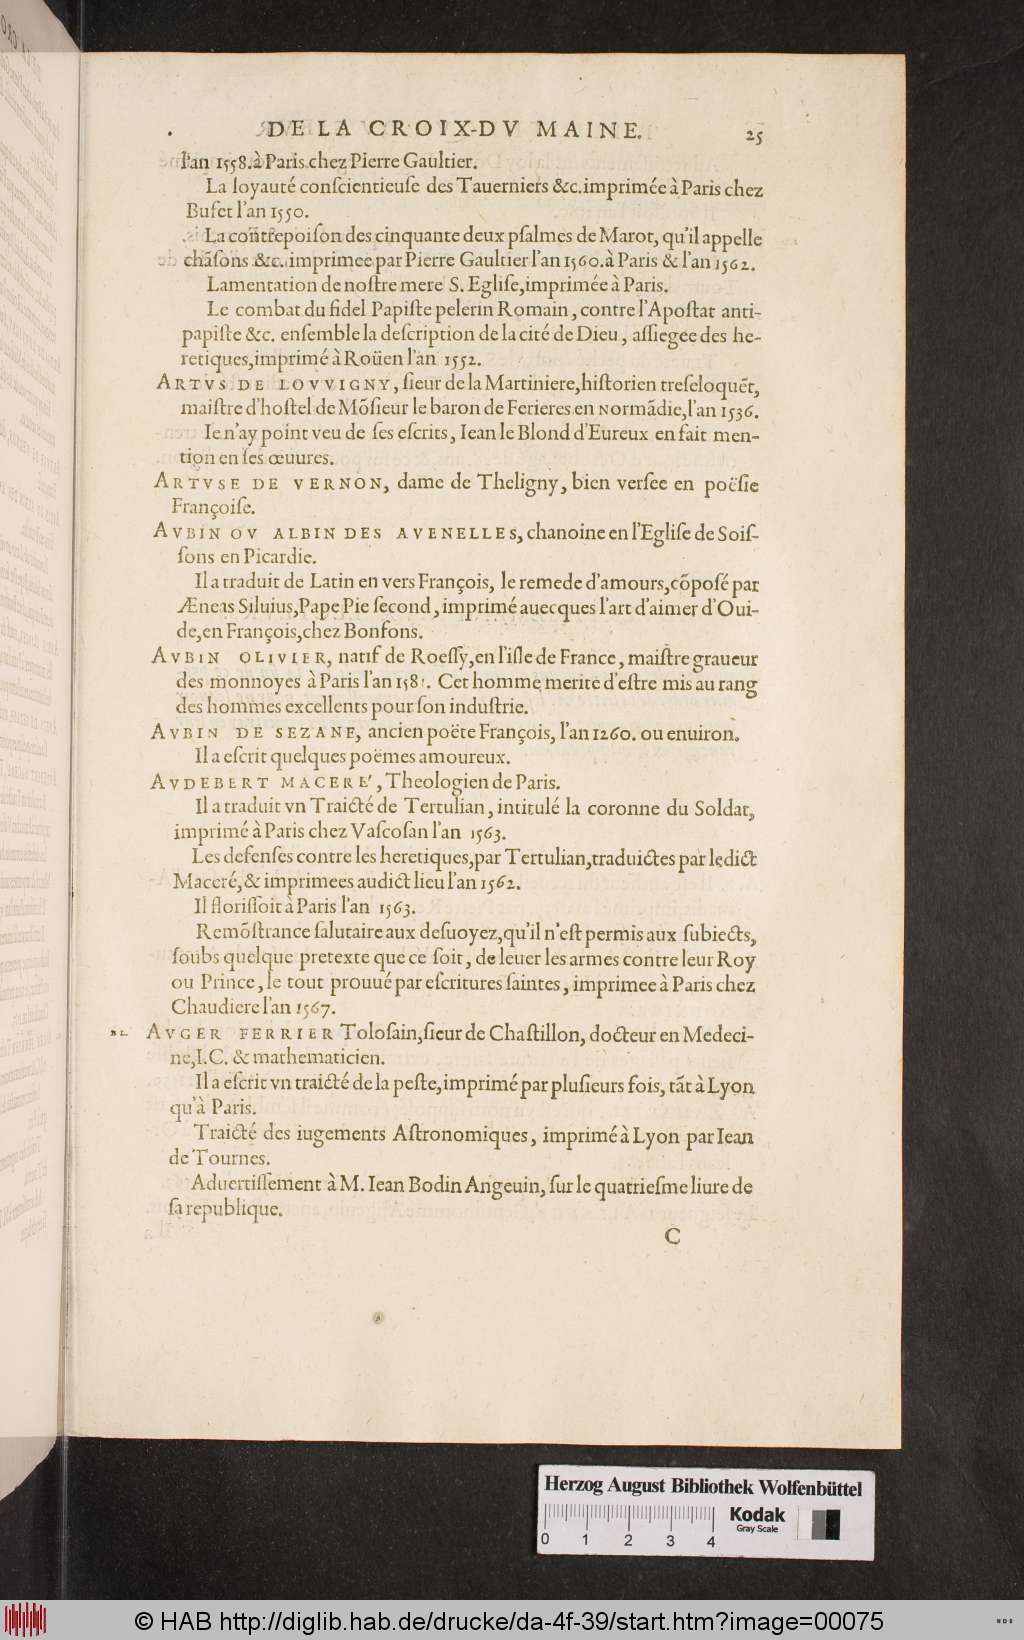 DE LA CROIX-DV MAINE. 25
l'an 1558. à Paris chez Pierre Gaultier.
La loyauté conſcientieuſe des Tauerniers &c. imprimée à Paris chez
Bufet l'an 1550.
La cõtrepoiſon des cinquante deux pſalmes de Marot, qu'il appelle
chãſons &c. imprimee par Pierre Gaultier l'an 1560. à Paris & l'an 1562.
Lamentation de noſtre mere S. Egliſe, imprimée à Paris.
Le combat du fidel Papiſte pelerin Romain, contre l'Apoſtat anti-
papiſte &c. enſemble la deſcription de la cité de Dieu, aſſiegee des he-
retiques, imprimé à Roüen l'an 1552.
ARTVS DE LOVVIGNY, ſieur de la Martiniere, hiſtorien treſeloquẽt,
maiſtre d'hoſtel de Mõſieur le baron de Ferieres en Normãdie, l'an 1536.
Ie n'ay point veu de ſes eſcrits, Iean le Blond d'Eureux en fait men-
tion en ſes œuures.
ARTVSE DE VERNON, dame de Theligny, bien verſee en poëſie
Françoiſe.
AVBIN OV ALBIN DES AVENELLES, chanoine en l'Egliſe de Soiſ-
ſons en Picardie.
Il a traduit de Latin en vers François, le remede d'amours, cõpoſé par
Æneas Siluius, Pape Pie ſecond, imprimé auecques l'art d'aimer d'Oui-
de, en François, chez Bonfons.
AVBIN OLIVIER, natif de Roeſſy, en l'iſle de France, maiſtre graueur
des monnoyes à Paris l'an 1581. Cet homme merite d'eſtre mis au rang
des hommes excellents pour ſon induſtrie.
AVBIN DE SEZANE, ancien poëte François, l'an 1260. ou enuiron.
Il a eſcrit quelques poëmes amoureux.
AVDEBERT MACERE', Theologien de Paris.
Il a traduit vn Traicté de Tertulian, intitulé la coronne du Soldat,
imprimé à Paris chez Vaſcoſan l'an 1563.
Les defenſes contre les heretiques, par Tertulian, traduictes par ledict
Maceré, & imprimees audict lieu l'an 1562.
Il floriſſoit à Paris l'an 1563.
Remõſtrance ſalutaire aux deſuoyez, qu'il n'eſt permis aux ſubiects,
ſoubs quelque pretexte que ce ſoit, de leuer les armes contre leur Roy
ou Prince, le tout prouué par eſcritures ſaintes, imprimee à Paris chez
Chaudiere l'an 1567.
AVGER FERRIER Toloſain, ſieur de Chaſtillon, docteur en Medeci-
ne, I.C. & mathematicien.
Il a eſcrit vn traicté de la peſte, imprimé par pluſieurs fois, tãt à Lyon
qu'à Paris.
Traicté des iugements Aſtronomiques, imprimé à Lyon par Iean
de Tournes.
Aduertiſſement à M. Iean Bodin Angeuin, ſur le quatrieſme liure de
ſa republique.
C
Herzog August Bibliothek Wolfenbüttel
Kodak
Gray Scale
0 1 2 3 4
© HAB http://diglib.hab.de/drucke/da-4f-39/start.htm?image=00075